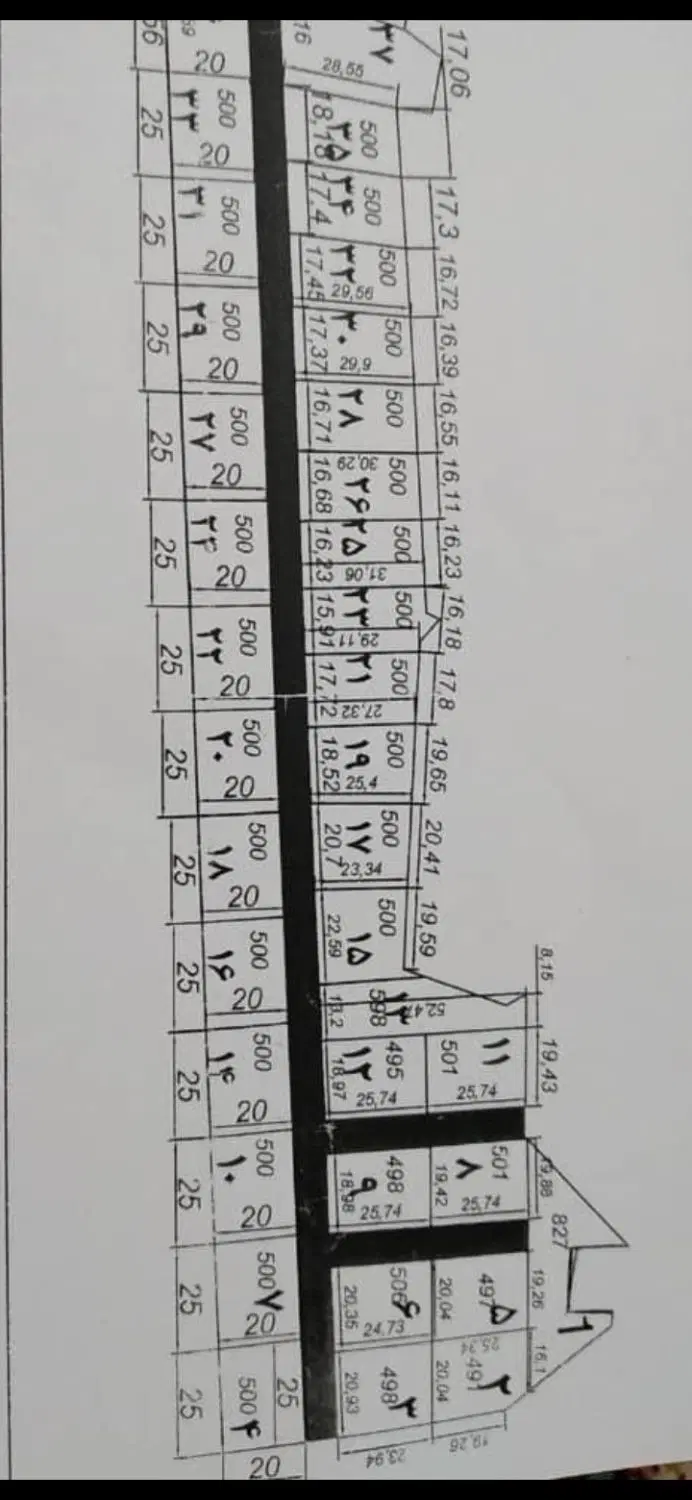 56 59 20 16 28,55 ۳۷ 17,06
25 ۳۳ 500 20 18,18 ۳۵ 500
25 ۳۱ 500 20 17,4 ۳۴ 500 17,3
17,45 ۳۲ 29,56 500 16,72
25 ۲۹ 500 20 17,37 ۳۰ 29,9 500 16,39
25 ۲۷ 500 20 16,71 ۲۸ 500 16,55
16,68 30,29 ۲۶ 500 16,11
25 ۲۴ 500 20 16,23 ۲۵ 31,06 500 16,23
15,91 ۲۳ 29,11 500 16,18
25 ۲۲ 500 20 17,72 ۲۱ 27,32 500 17,8
25 ۲۰ 500 20 18,52 ۱۹ 25,4 500 19,65
25 ۱۸ 500 20 20,7 ۱۷ 23,34 500 20,41
25 ۱۶ 500 20 22,59 ۱۵ 500 19,59
13,2 598 ۱۳ 52,47 8,15
25 ۱۴ 500 20 18,97 ۱۲ 495 25,74 501 ۱۱ 25,74 19,43
25 ۱۰ 500 20 18,98 ۹ 498 25,74 19,42 ۸ 501 25,74 19,86
827 ۱
25 500 ۷ 20 20,35 506 ۶ 24,73 20,04 497 ۵ 19,26
25 500 ۴ 25 20,93 498 ۳ 20,04 491 ۲ 16,1
20 23,94 19,26